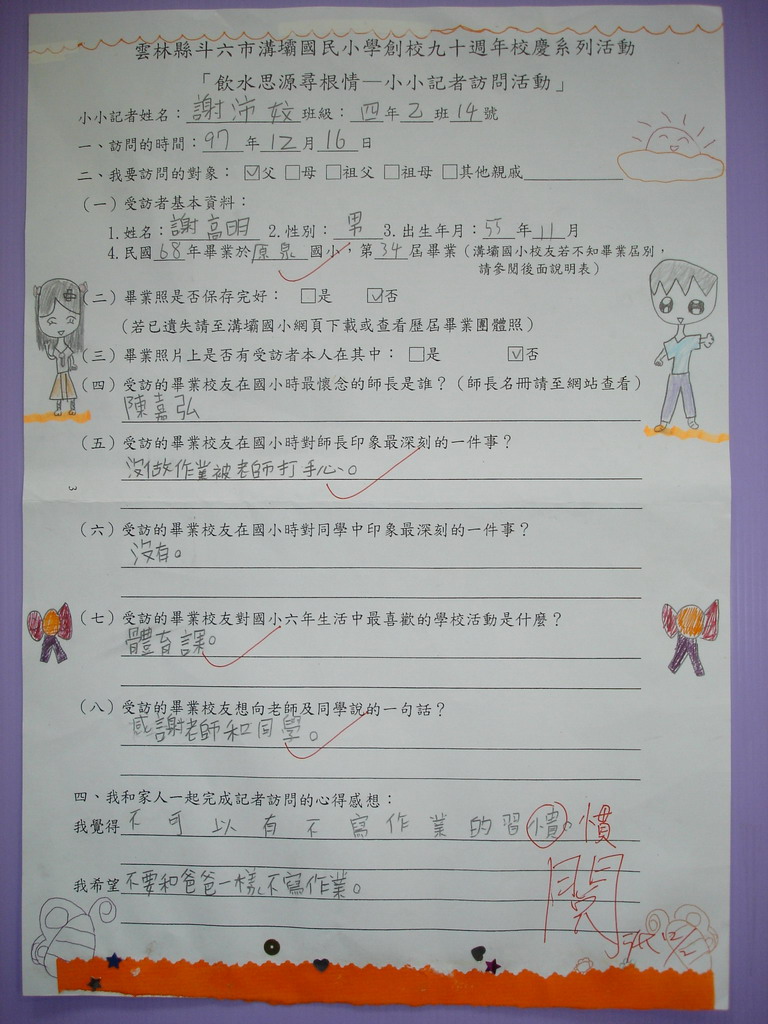 雲林縣斗六市溝壩國民小學創校九十週年校慶系列活動
「飲水思源尋根情—小小記者訪問活動」
小小記者姓名：謝沛妏 班級：四年乙班14號
一、訪問的時間：97年12月16日
二、我要訪問的對象：☑父 □母 □祖父 □祖母 □其他親戚
（一）受訪者基本資料：
1.姓名：謝高明 2.性別：男 3.出生年月：55年11月
4.民國68年畢業於原泉國小，第34屆畢業（溝壩國小校友若不知畢業屆別，
請參閱後面說明表）
（二）畢業照是否保存完好：□是 ☑否
（若已遺失請至溝壩國小網頁下載或查看歷屆畢業團體照）
（三）畢業照片上是否有受訪者本人在其中：□是 ☑否
（四）受訪的畢業校友在國小時最懷念的師長是誰？（師長名冊請至網站查看）
陳嘉弘
（五）受訪的畢業校友在國小時對師長印象最深刻的一件事？
沒做作業被老師打手心。
3
（六）受訪的畢業校友在國小時對同學中印象最深刻的一件事？
沒有。
（七）受訪的畢業校友對國小六年生活中最喜歡的學校活動是什麼？
體育課。
（八）受訪的畢業校友想向老師及同學說的一句話？
感謝老師和同學。
四、我和家人一起完成記者訪問的心得感想：
我覺得不可以有不寫作業的習慣。慣
我希望不要和爸爸一樣，不寫作業。
閱